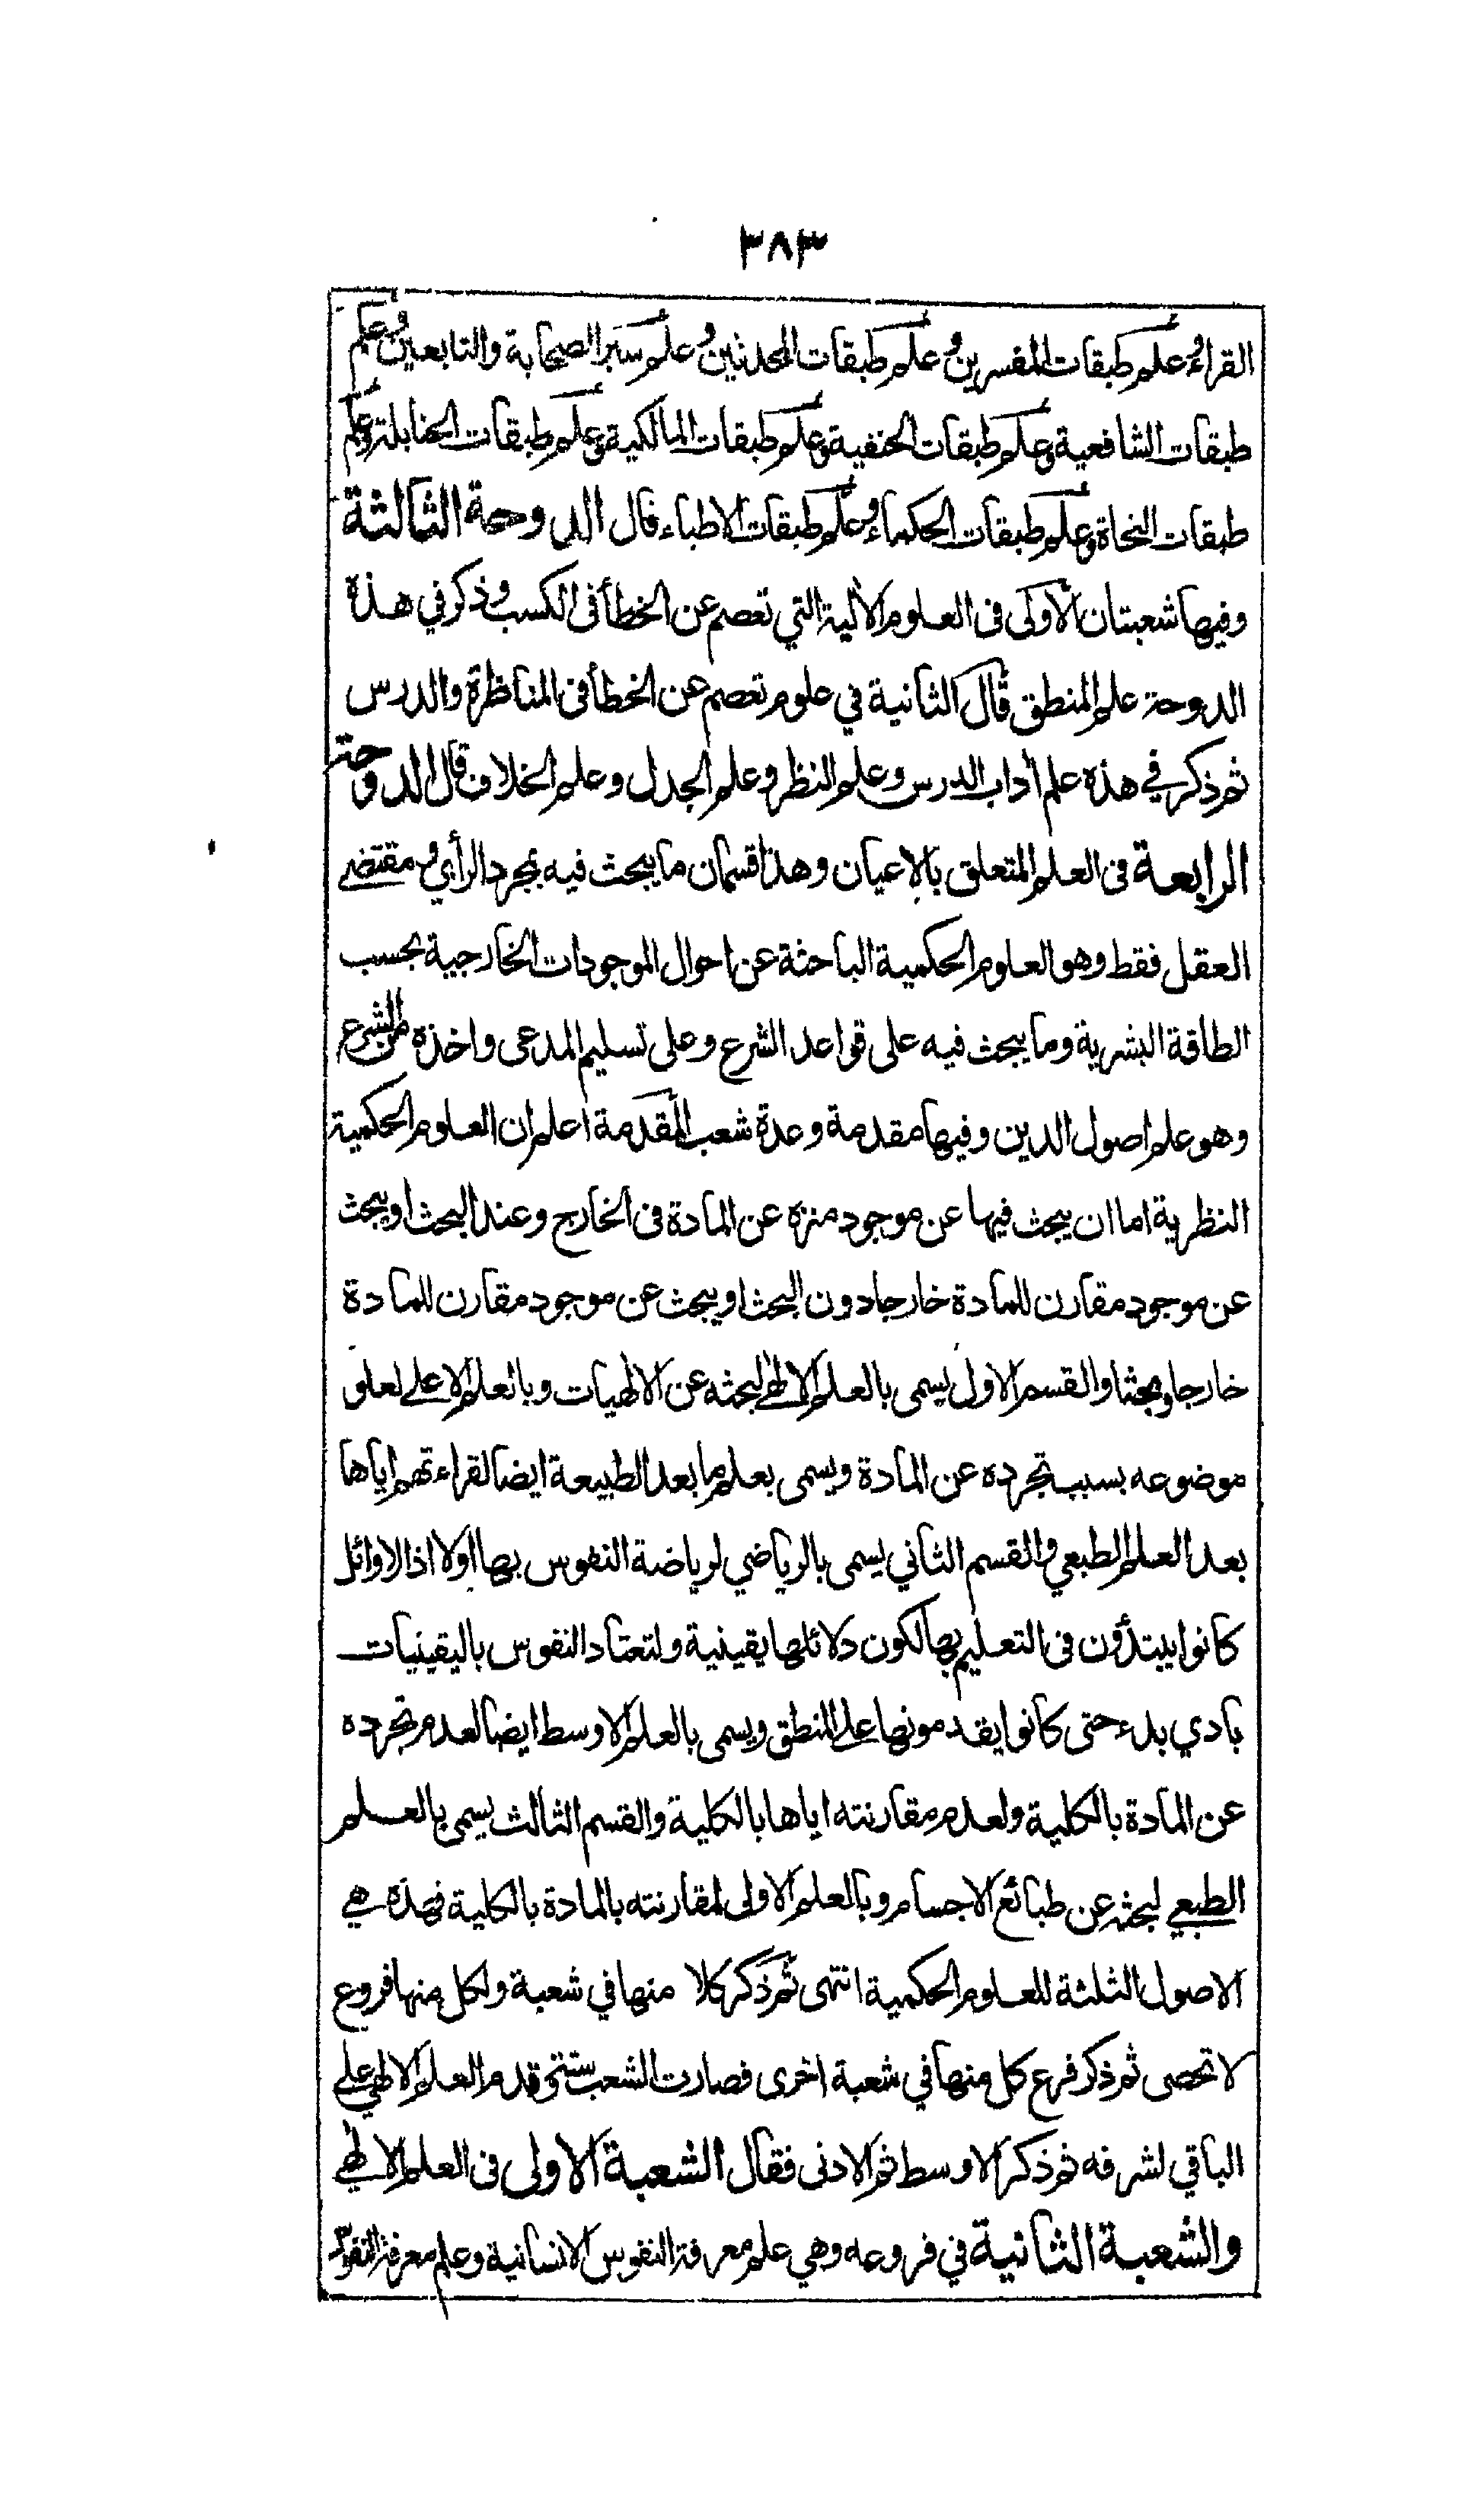 ٣٨٣
القراء وعلم طبقات المفسرين وعلم طبقات المحدثين وعلم سير الصحابة والتابعين وعلم
طبقات الشافعية وعلم طبقات الحنفية وعلم طبقات المالكية وعلم طبقات الحنابلة وعلم
طبقات النحاة وعلم طبقات الحكماء وعلم طبقات الاطباء قال الدوحة الثالثة
وفيها شعبتان الأولى فى العلوم الآلية التي تعصم عن الخطأ فى الكسب وذكر في هذه
الدوحة علم المنطق قال الثانية في علوم تعصم عن الخطأ فى المناظرة والدرس
ثم ذكر في هذه علم آداب الدرس وعلم النظر وعلم الجدل وعلم الخلاف قال الدوحة
الرابعة فى العلم المتعلق بالاعيان وهذا قسمان ما يبحث فيه بمجرد الرأي ومقتضى
العقل فقط وهو العلوم الحكمية الباحثة عن احوال الموجودات الخارجية بحسب
الطاقة البشرية وما يبحث فيه على قواعد الشرع وعلى تسليم المدعى واخذه من الشرع
وهو علم اصول الدين وفيها مقدمة وعدة شعب المقدمة اعلم ان العلوم الحكمية
النظرية اما ان يبحث فيها عن موجود منزه عن المادة فى الخارج وعند البحث او يبحث
عن موجود مقارن للمادة خارجا دون البحث او يبحث عن موجود مقارن للمادة
خارجا وبحثا والقسم الاول يسمى بالعلم الالهي لبحثه عن الالهيات وبالعلم الاعلے لعلو
موضوعه بسبب تجرده عن المادة ويسمى بعلم ما بعد الطبيعة ايضا لقراءتهم اياها
بعد العلم الطبعي والقسم الثاني يسمى بالرياضي لرياضة النفوس بها اولا اذ الاوائل
كانوا يبتدؤن فى التعليم بها لكون دلائلها يقينية ولتعتاد النفوس باليقينيات
بادي بدء حتى كانوا يقدمونها على المنطق ويسمى بالعلم الاوسط ايضا لعدم تجرده
عن المادة بالكلية ولعدم مقارنته اياها بالكلية والقسم الثالث يسمى بالعلم
الطبعي لبحثه عن طبائع الاجسام وبالعلم الاولى لمقارنته بالمادة بالكلية فهذه هي
الاصول الثلثة للعلوم الحكمية انتهى ثم ذكر كلا منها في شعبة ولكل منها فروع
لا تحصى ثم ذكر فرع كل منها في شعبة اخرى فصارت الشعب ستة وقدم العلم الالهي على
الباقي لشرفه ثم ذكر الاوسط ثم الادنى فقال الشعبة الاولى فى العلم الالهي
والشعبة الثانية في فروعه وهي علم معرفة النفوس الانسانية وعلم معرفة النفوس